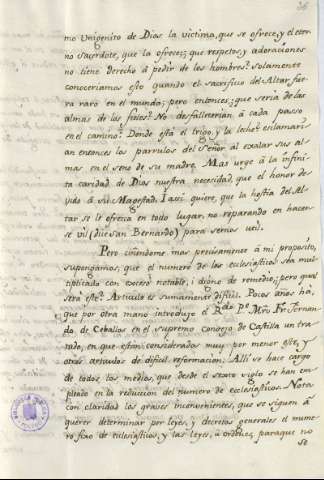 36
mo Unigenito de Dios la victima, que se ofrece, y el eter
no Sacerdote, que la ofrece; que respetos, y adoraciones
no tiene derecho á pedir de los hombres? Solamente
conoceriamos esto quando el sacrificio del Altar fue
ra raro en el mundo; pero entonces, que seria de las
almas de los fieles? No desfallecerian á cada passo
en el camino? Donde está el trigo, y la leche? exclamari
an entonces los parvulos del Señor al exalar sus al
mas en el seno de su madre. Mas urge à la infini
ta caridad de Dios nuestra necesidad, que el honor de
vido à su Magestad. Y assi quiere, que la hostia del Al
tar se le ofrezca en todo lugar, no reparando en hacer
se vil (dice san Bernardo) para sernos util.
Pero ciñendome mas precisamente à mi proposito,
supongamos, que el numero de los eclesiasticos sea mul
tiplicado con exceso notable, i digno de remedio; pero qual
será este? Articulo es sumamente dificil. Pocos años há,
que por otra mano introdujo el R.mo P. Mro. Fr. Fernan
do de Ceballos en el supremo consejo de Castilla un tra
tado, en que están considerados muy por menor este, y
otros articulos de dificil reformacion. Alli se hace cargo
de todos los medios, que desde el sexto siglo se han em
pleado en la reduccion del numero de eclesiasticos. Nota
con claridad los graves inconvenientes, que se siguen á
querer determinar por leyes, y decretos generales el nume
ro fixo de eclesiasticos, y las leyes, ù ordenes, para que no
se